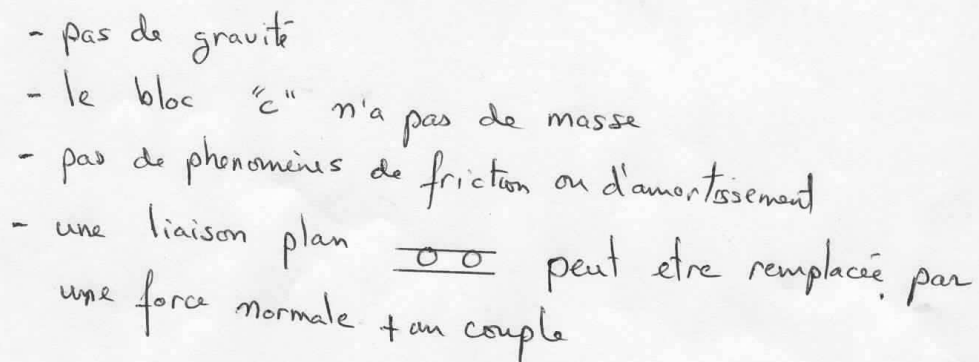 - pas de gravité
- le bloc "c" n'a pas de masse
- pas de phenomènes de friction ou d'amortissement
- une liaison plan peut etre remplacée par
une force normale + un couple